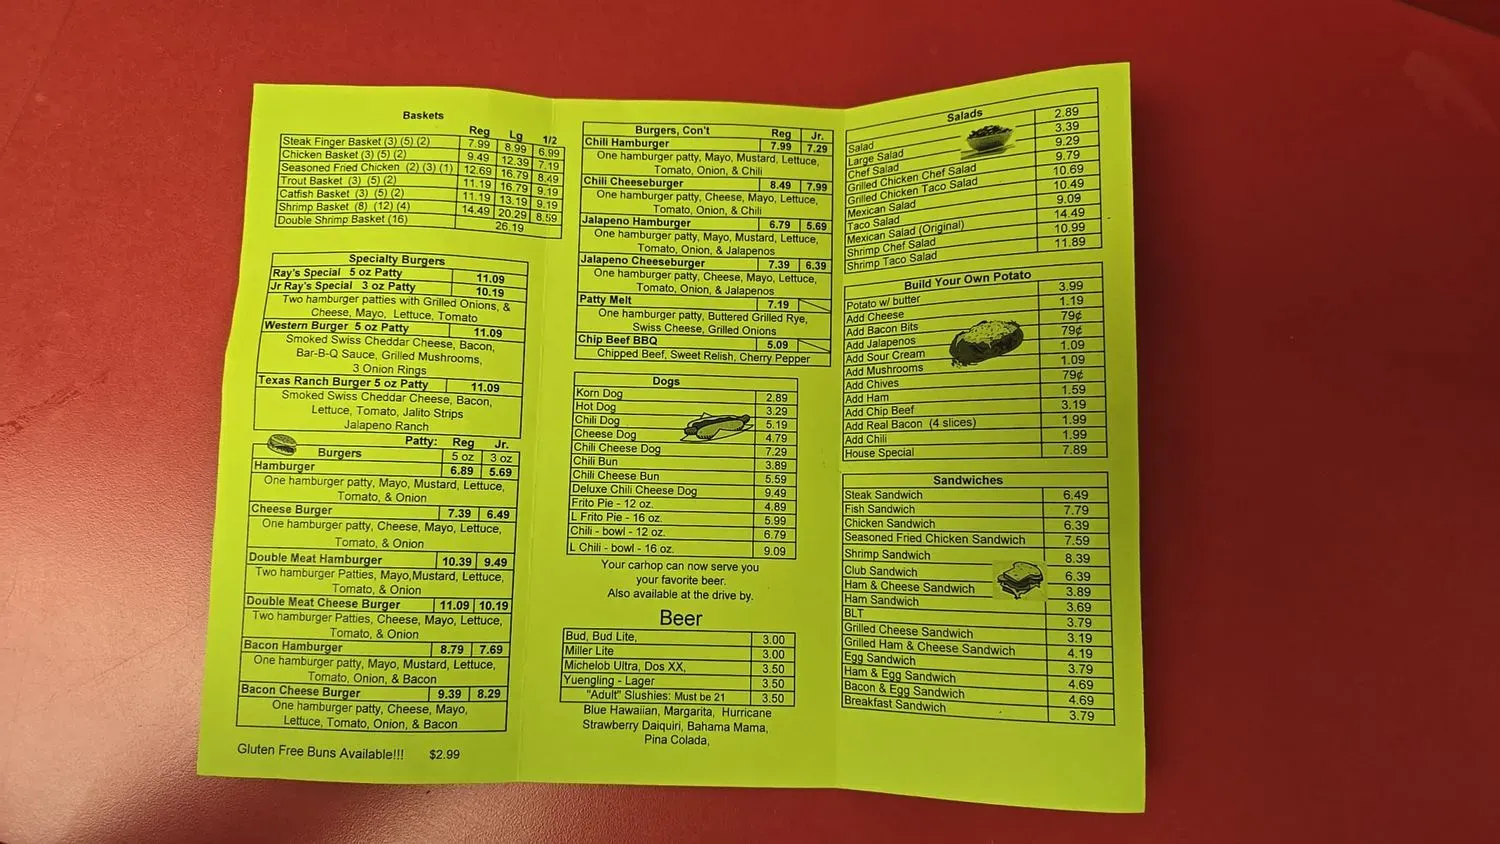 Baskets
Reg Lg 1/2
Steak Finger Basket (3) (5) (2) 7.99 8.99 6.99
Chicken Basket (3) (5) (2) 9.49 12.39 7.19
Seasoned Fried Chicken (2) (3) (1) 12.69 16.79 8.49
Trout Basket (3) (5) (2) 11.19 16.79 9.19
Catfish Basket (3) (5) (2) 11.19 13.19 9.19
Shrimp Basket (8) (12) (4) 14.49 20.29 8.59
Double Shrimp Basket (16) 26.19
Specialty Burgers
Ray's Special 5 oz Patty 11.09
Jr Ray's Special 3 oz Patty 10.19
Two hamburger patties with Grilled Onions, &
Cheese, Mayo, Lettuce, Tomato
Western Burger 5 oz Patty 11.09
Smoked Swiss Cheddar Cheese, Bacon,
Bar-B-Q Sauce, Grilled Mushrooms,
3 Onion Rings
Texas Ranch Burger 5 oz Patty 11.09
Smoked Swiss Cheddar Cheese, Bacon,
Lettuce, Tomato, Jalito Strips
Jalapeno Ranch
Patty: Reg Jr.
Burgers 5 oz 3 oz
Hamburger 6.89 5.69
One hamburger patty, Mayo, Mustard, Lettuce,
Tomato, & Onion
Cheese Burger 7.39 6.49
One hamburger patty, Cheese, Mayo, Lettuce,
Tomato, & Onion
Double Meat Hamburger 10.39 9.49
Two hamburger Patties, Mayo,Mustard, Lettuce,
Tomato, & Onion
Double Meat Cheese Burger 11.09 10.19
Two hamburger Patties, Cheese, Mayo, Lettuce,
Tomato, & Onion
Bacon Hamburger 8.79 7.69
One hamburger patty, Mayo, Mustard, Lettuce,
Tomato, Onion, & Bacon
Bacon Cheese Burger 9.39 8.29
One hamburger patty, Cheese, Mayo,
Lettuce, Tomato, Onion, & Bacon
Gluten Free Buns Available!!! $2.99
Burgers, Con't Reg Jr.
Chili Hamburger 7.99 7.29
One hamburger patty, Mayo, Mustard, Lettuce,
Tomato, Onion, & Chili
Chili Cheeseburger 8.49 7.99
One hamburger patty, Cheese, Mayo, Lettuce,
Tomato, Onion, & Chili
Jalapeno Hamburger 6.79 5.69
One hamburger patty, Mayo, Mustard, Lettuce,
Tomato, Onion, & Jalapenos
Jalapeno Cheeseburger 7.39 6.39
One hamburger patty, Cheese, Mayo, Lettuce,
Tomato, Onion, & Jalapenos
Patty Melt 7.19
One hamburger patty, Buttered Grilled Rye,
Swiss Cheese, Grilled Onions
Chip Beef BBQ 5.09
Chipped Beef, Sweet Relish, Cherry Pepper
Dogs
Korn Dog 2.89
Hot Dog 3.29
Chili Dog 5.19
Cheese Dog 4.79
Chili Cheese Dog 7.29
Chili Bun 3.89
Chili Cheese Bun 5.59
Deluxe Chili Cheese Dog 9.49
Frito Pie - 12 oz. 4.89
L Frito Pie - 16 oz. 5.99
Chili - bowl - 12 oz. 6.79
L Chili - bowl - 16 oz. 9.09
Your carhop can now serve you
your favorite beer.
Also available at the drive by.
Beer
Bud, Bud Lite, 3.00
Miller Lite 3.00
Michelob Ultra, Dos XX, 3.50
Yuengling - Lager 3.50
"Adult" Slushies: Must be 21 3.50
Blue Hawaiian, Margarita, Hurricane
Strawberry Daiquiri, Bahama Mama,
Pina Colada,
Salads
Salad 2.89
Large Salad 3.39
Chef Salad 9.29
Grilled Chicken Chef Salad 9.79
Grilled Chicken Taco Salad 10.69
Mexican Salad 10.49
Taco Salad 9.09
Mexican Salad (Original) 14.49
Shrimp Chef Salad 10.99
Shrimp Taco Salad 11.89
Build Your Own Potato
Potato w/ butter 3.99
Add Cheese 1.19
Add Bacon Bits 79¢
Add Jalapenos 79¢
Add Sour Cream 1.09
Add Mushrooms 1.09
Add Chives 79¢
Add Ham 1.59
Add Chip Beef 3.19
Add Real Bacon (4 slices) 1.99
Add Chili 1.99
House Special 7.89
Sandwiches
Steak Sandwich 6.49
Fish Sandwich 7.79
Chicken Sandwich 6.39
Seasoned Fried Chicken Sandwich 7.59
Shrimp Sandwich 8.39
Club Sandwich 6.39
Ham & Cheese Sandwich 3.89
Ham Sandwich 3.69
BLT 3.79
Grilled Cheese Sandwich 3.19
Grilled Ham & Cheese Sandwich 4.19
Egg Sandwich 3.79
Ham & Egg Sandwich 4.69
Bacon & Egg Sandwich 4.69
Breakfast Sandwich 3.79